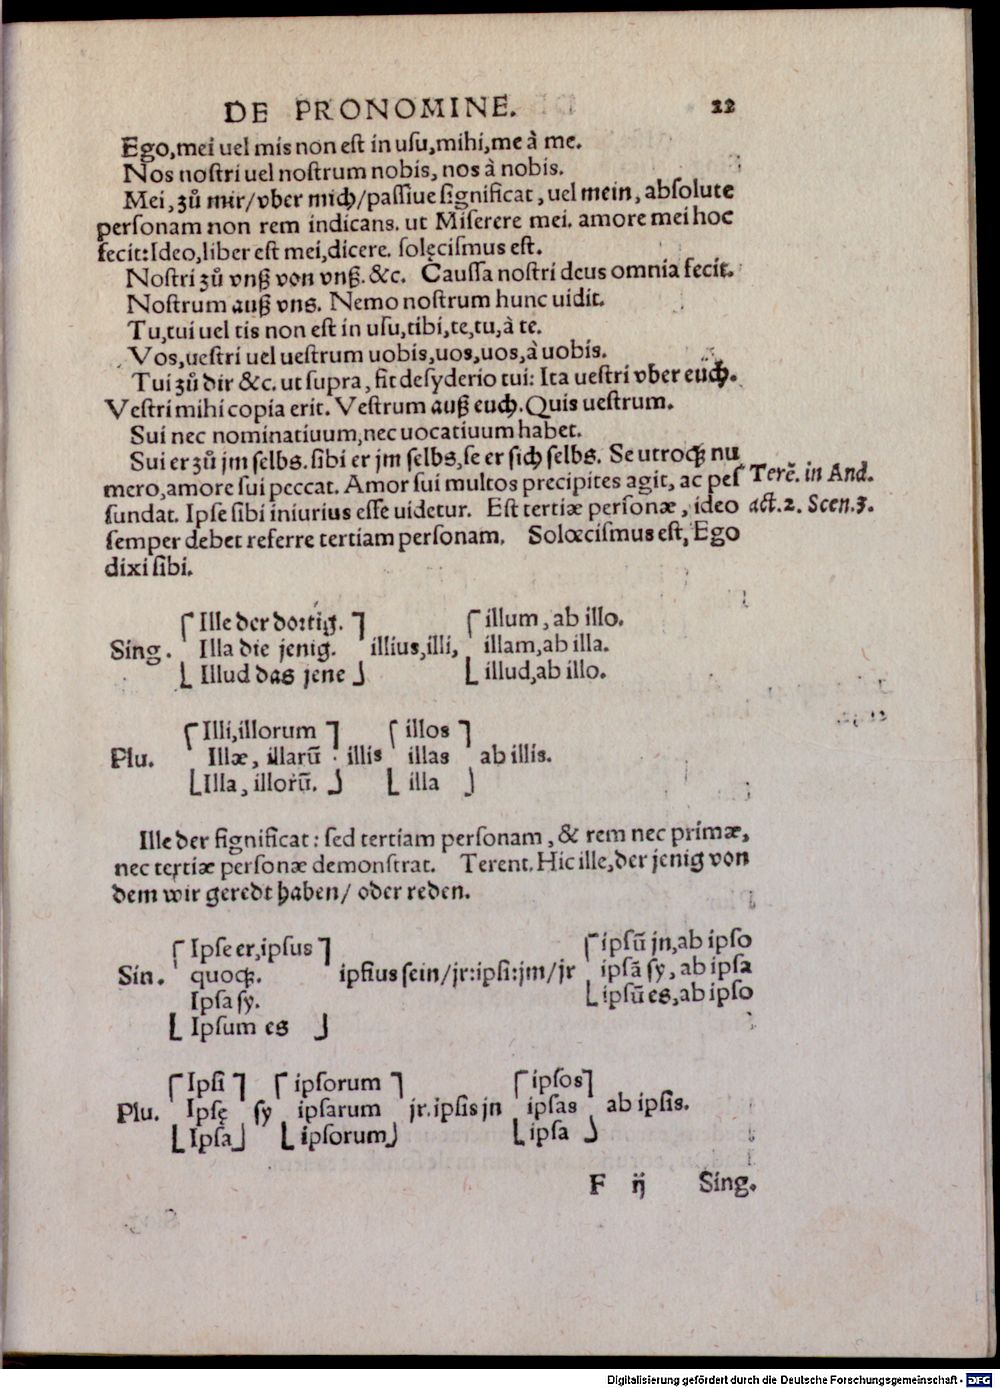 DE PRONOMINE. 22
Ego,mei uel mis non est in usu,mihi,me à me.
Nos nostri uel nostrum nobis, nos à nobis.
Mei, zů mir/vber mich/passiue significat, uel mein, absolute
personam non rem indicans. ut Miserere mei. amore mei hoc
fecit:Ideo,liber est mei,dicere. solęcismus est.
Nostri zů vnß von vnß. &c. Caussa nostri deus omnia fecit.
Nostrum auß vns. Nemo nostrum hunc uidit.
Tu,tui uel tis non est in usu,tibi,te,tu,à te.
Vos,uestri uel uestrum uobis,uos,uos,à uobis.
Tui zů dir &c. ut supra, fit desyderio tui: Ita uestri vber eüch.
Vestri mihi copia erit. Vestrum auß euch. Quis uestrum.
Sui nec nominatiuum,nec uocatiuum habet.
Sui er zů jm selbs. sibi er jm selbs,se er sich selbs. Se utrocꝫ nu
mero,amore sui peccat. Amor sui multos precipites agit, ac pes
sundat. Ipse sibi iniurius esse uidetur. Est tertiæ personæ, ideo
semper debet referre tertiam personam. Solœcismus est, Ego
dixi sibi.
Terē. in And.
act.2. Scen.3.
⌈Ille der dortig.⌉ ⌈illum, ab illo.
Sing. Illa die jenig. illius,illi, illam,ab illa.
⌊Illud das jene⌋ ⌊illud,ab illo.
⌈Illi,illorum⌉ ⌈illos⌉
Plu. Illæ, illarū illis illas ab illis.
⌊Illa, illorū.⌋ ⌊illa⌋
Ille der significat: sed tertiam personam, & rem nec primæ,
nec tertiæ personæ demonstrat. Terent. Hic ille,der jenig von
dem wir geredt haben/ oder reden.
⌈Ipse er,ipsus⌉ ⌈ipsū jn,ab ipso
Sin. quocꝫ. ipsius sein/jr:ipsi:jm/jr ipsā sy, ab ipsa
Ipsa sy. ⌊ipsū es,ab ipso
⌊Ipsum es⌋
⌈Ipsi⌉ ⌈ipsorum⌉ ⌈ipsos⌉
Plu. Ipsę sy ipsarum jr. ipsis jn ipsas ab ipsis.
⌊Ipsa⌋ ⌊ipsorum⌋ ⌊ipsa⌋
F ij Sing.
Digitalisierung gefördert durch die Deutsche Forschungsgemeinschaft - DFG